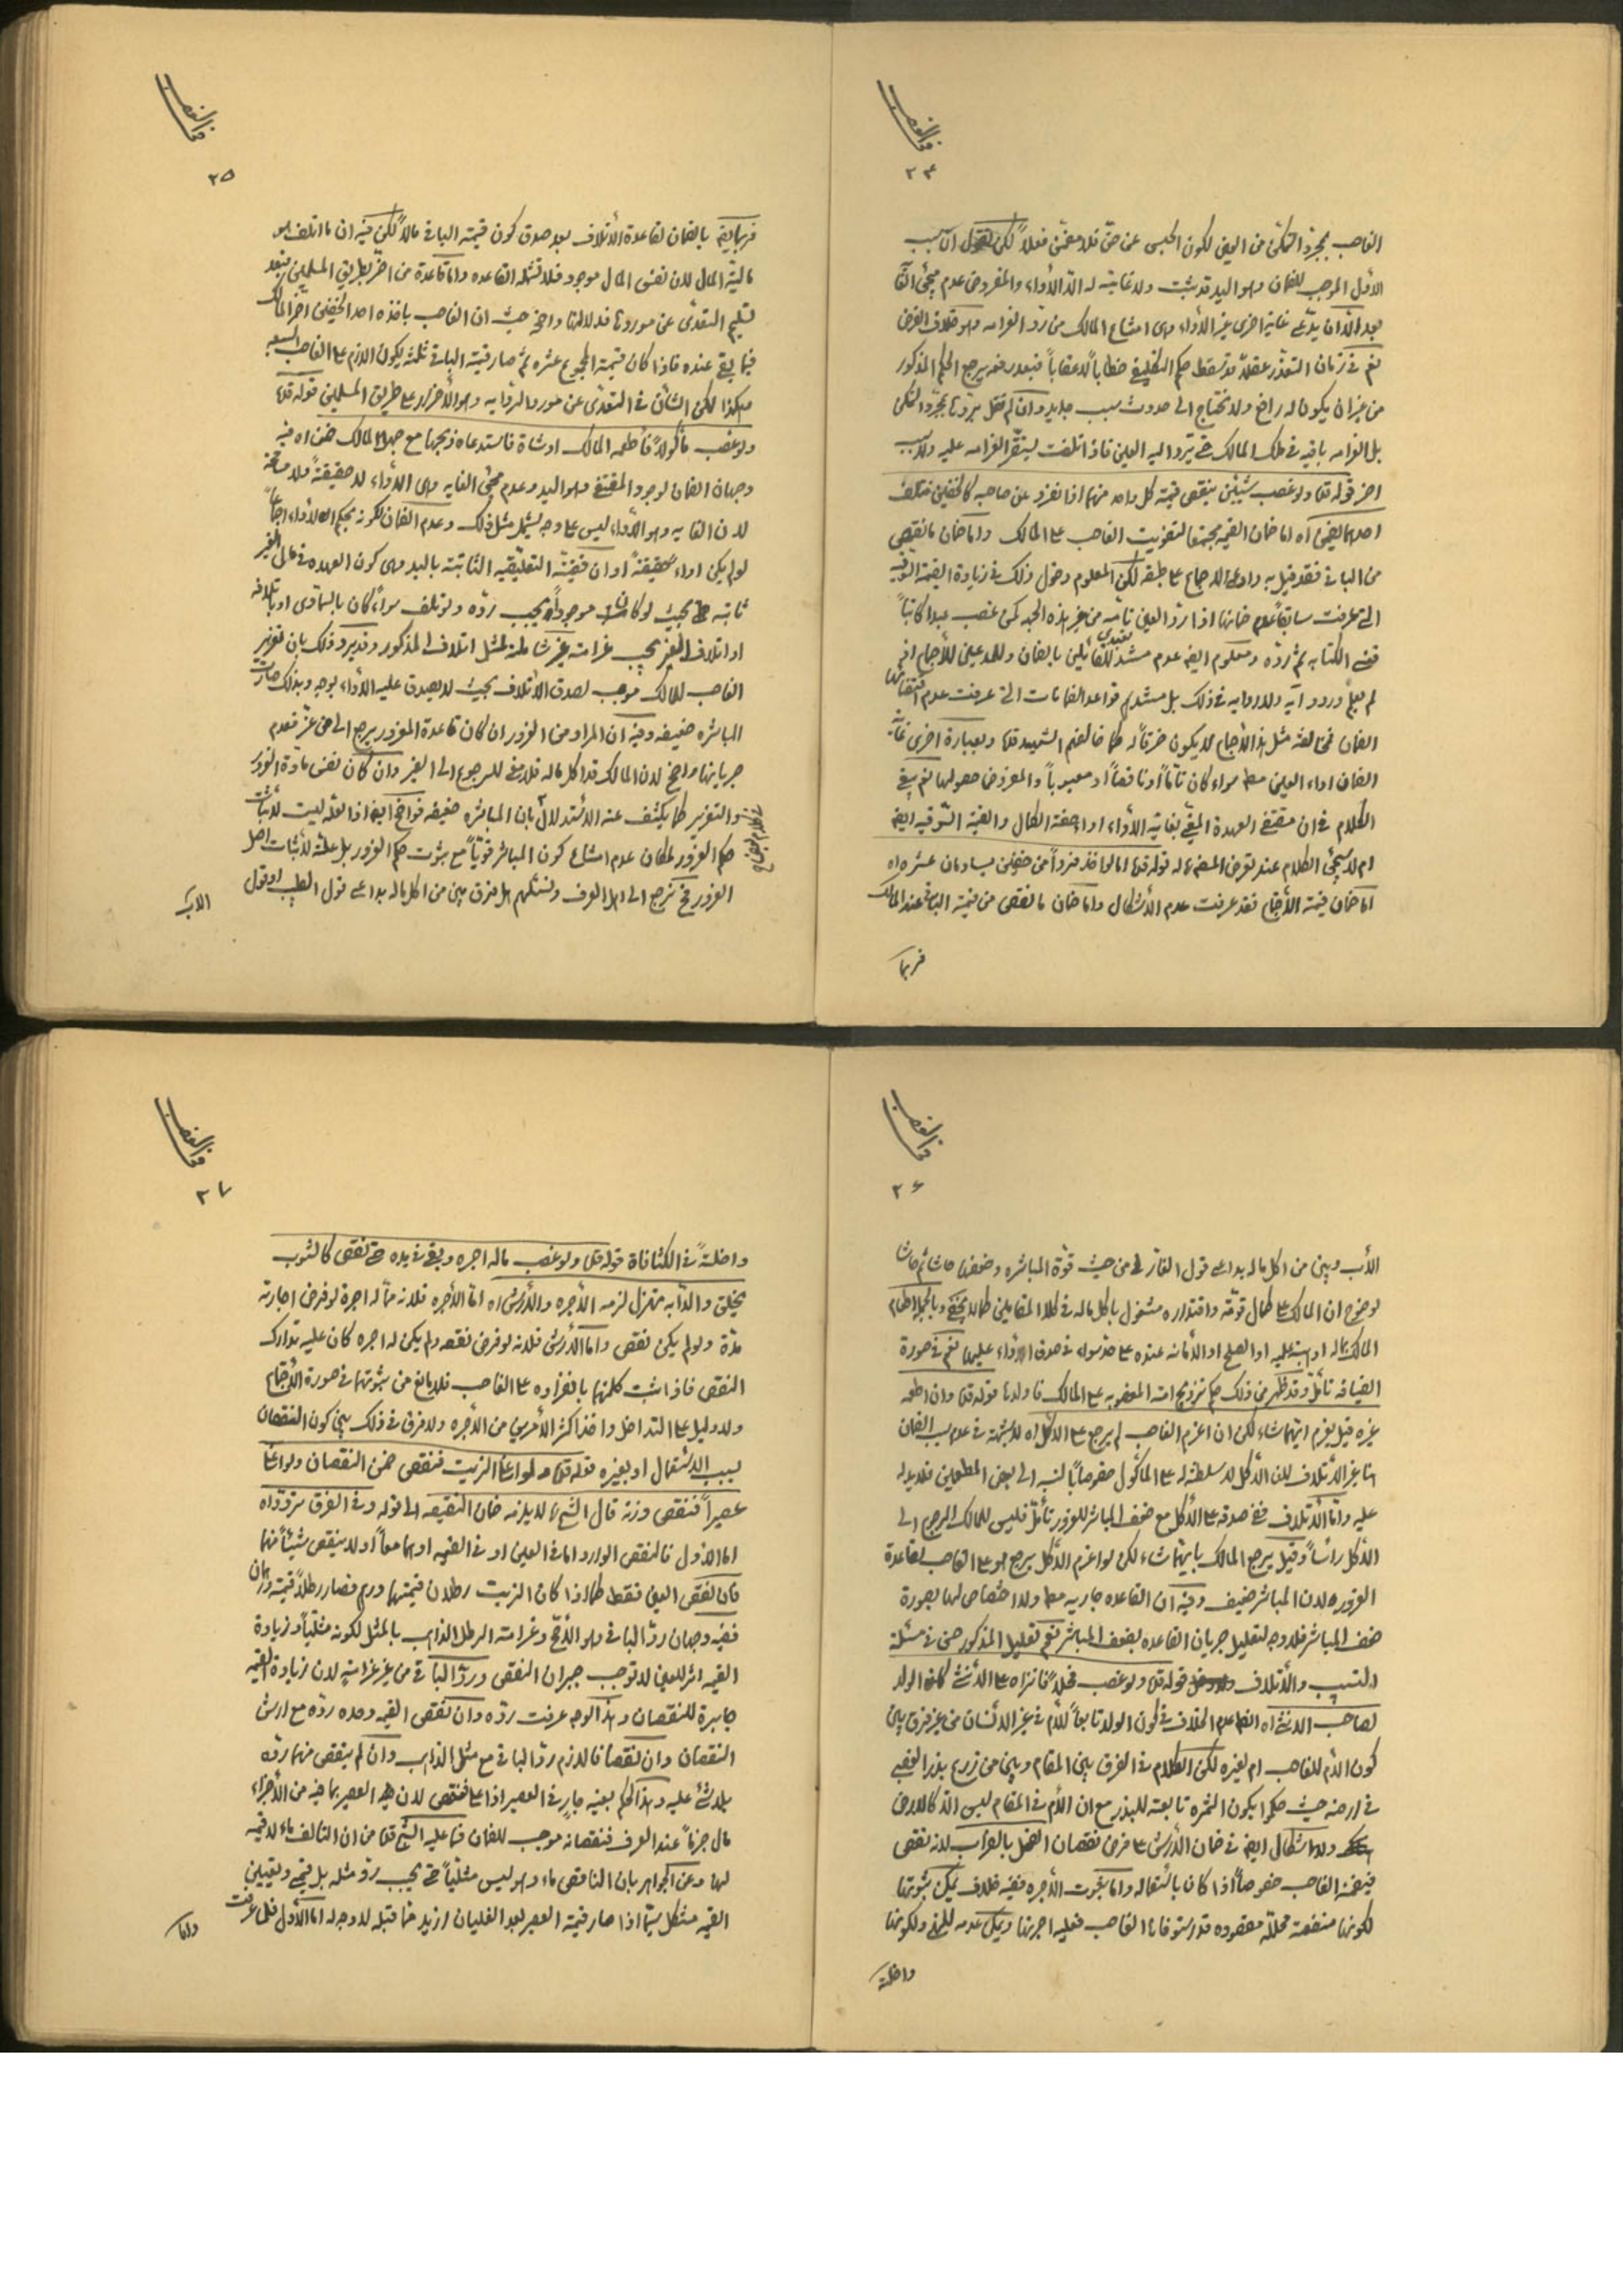 ٢٤
الغاصب بمجرّد التمكن من العين لكون الحبس عن حقّ فلا مقتضى فعلاً لكن
الأول الموجب للضمان وهو اليد قد ثبت ولا غاية له الّا الأداء والمفروض عدم مجئ
بعد الّا ان يدّعى غاية اخرى غير الأداء وهى امتناع المالك من ردّ الغرامه وهو خلاف الفرض
نعم فى زمان التعذّر عقلاً قد يسقط حكم التكليفى خطاباً لا عقاباً فبعد رفعه يرجع الحكم المذكور
من غير ان يكون له رافع ولا نحتاج الى حدوث سبب جديد وان لم نقل بردّها بمجرّد التمكن
بل الغرامه باقيه فى ملك المالك حتى يردّ اليه العين فاذا تلفت ليستقرّ الغرامه عليه ولا سبب
اخر قوله قده ولو غصب شيئين ينقص قيمة كل واحد منهما اذا انفرد عن صاحبه كالخفين فتلف
احدهما ضمن اه اما ضمان القيمه مجتمعا لتفويت الغاصب على المالك واما ضمان ما نقص
من الباقى فقد قيل به وادعى الاجماع على طبقه لكن المعلوم دخول ذلك فى زيادة القيمة السوقيه
التى عرفت سابقاً عدم ضمانها اذا ردّ العين تامّه من غير هذه الجهه كمن غصب عبدا كاتباً
فنسى الكتابه ثم ردّه ومعلوم ايضا عدم مستند للقائلين بالضمان وللمدعين للأجماع اذ
لم يعلم ورود آية ولا رواية فى ذلك بل مستندهم قواعد الضمانات التى عرفت عدم اقتضائها
الضمان فمخالفة مثل هذا الاجماع لا يكون خرقاً له كما خالفهم الشهيد قده وبعبارة اخرى غاية
الضمان اداء العين مط سواء كان تامّاً او ناقصاً او معيوباً والمفروض حصولها نعم يبقى
الكلام فى ان مقتضى العهدة المغياة بغاية الأداء اداء صفة الكمال والقيمة السوقيه ايضا
ام لا سيجئ الكلام عند تعرض المصنف له قوله قده اما لو اخذ فرداً من خفين يساويان عشره اه
اما ضمان قيمة الأجتماع فقد عرفت عدم الأشكال واما ضمان ما نقص من قيمة الباقى عند المالك
فربما
٢٥
فربما يقع بالضمان لقاعدة الأتلاف بعد صدق كون قيمة الباقى مالاً لكن فيه ان ما اتلف هو
مالية المال لان نفس المال موجود فلا تشمله القاعده واما قاعدة من اضرّ بطريق المسلمين فبعد
تسليم التعدّى عن موردها فدلالتها واضح حيث ان الغاصب باخذه احد الخفين اضر المالك
فيما بقى عنده فاذا كان قيمة المجموع عشره ثم صار قيمة الباقى ثلث يكون اللازم على الغاصب السبعه
وهكذا لكن الشأن فى التعدّى عن مورد الروايه وهو الأضرار على طريق المسلمين قوله قده
ولو غصب مأكولاً فأطعمه المالك او شاة فاستدعاه ذبحها مع جهل المالك ضمن اه فيه
وجهان الضمان لوجود المقتضى وهو اليد وعدم مجئ الغايه وهى الأداء لا حقيقةً ولا
لان الغايه وهو الأداء ليس على وجه يشمل مثل ذلك وعدم الضمان لكونه بحكم الأداء اجماعاً
لو لم يكن اداء حقيقةً او ان قضيّة التعليقيه الثابته باليد وهى كون العهده فى مال الغير
ثابته بحيث لو كان موجوداً يجب ردّه ولو تلف سواء كان بالسماوى او باتلافه
او اتلاف الغير يجب غرامته غير شاملة لمثل اتلاف المذكور وقد يردّ ذلك بان تغرير
الغاصب للمالك موجب لصدق الأتلاف بحيث لا يصدق عليه الأداء بوجه وبذلك صارت
المباشره ضعيفه وفيه ان المراد من الغرور ان كان قاعدة المغرور يرجع الى من غرّ فعدم
جريانها واضح لان المالك قد اكل ماله فلا معنى للرجوع الى الغير وان كان نفس مادّة الغرور
والتغرير كما يكشف عنه الاستدلال بان المباشره ضعيفه فواضح ايضا اذ العلّة ليست لاثبات
حكم الغرور لمكان عدم امتناع كون المباشر قويّاً مع ثبوت حكم الغرور بل علّة لأثبات اصل
الغرور فح نرجع الى اهل العرف ونسئلهم هل فرق بين من اكل ماله بداعى قول الطبيب او قول
الاب
٢٦
الأب وبين من اكل ماله بداعى قول الغار فى من حيث قوّة المباشره وضعفها حاشا ثم حاشا
لوضوح ان المالك على كمال قوّته واقتداره مشغول باكل ماله فى كلا المقامين كما لا يخفى وبالجمله اطعام
المالك ماله او هبته عليه او الصلح او الأمانه عنده على حدّ سواء فى صدق الأداء عليها نعم فى صورة
الضيافه تأمّل وقد ظهر من ذلك حكم تزويج امته المغصوبه على المالك فاولدها قوله قده وان اطعمه
غيره قيل يغرم ايّهما شاء لكن ان اغرم الغاصب لم يرجع على الأكل اه لا شبهة فى عدم سبب الضمان
هنا غير الأتلاف لان الأكل لا سلطنة له على المأكول خصوصاً بالنسبه الى بعض المطعمين فلا يد له
عليه وامّا الأتلاف ففى صدقه على الأكل مع ضعف المباشر للغرور تأمّل فليس للمالك الرجوع الى
الأكل رأساً وقيل يرجع المالك بايهما شاء لكن لو اغرم الأكل يرجع هو على الغاصب لقاعدة
الغرور ولان المباشر ضعيف وفيه ان القاعده جاريه مط ولا اختصاص لها بصورة
ضعف المباشر فلا وجه لتعليل جريان القاعده بضعف المباشر نعم تعليل المذكور حسن فى مسئلة
التسبيب والأتلاف قوله قده ولو غصب فحلاً فانزاه على الأنثى كان الولد
لصاحب الأنثى اه الظ عدم الخلاف فى كون الولد تابعاً للأم فى غير الأنسان من غير فرق بين
كون الأم للغاصب ام لغيره لكن الكلام فى الفرق بين المقام وبين من زرع بذر الغصب
فى ارضه حيث حكموا بكون الثمره تابعة للبذر مع ان الأم فى المقام ليس الّا كالارض
ولا اشكال ايضا فى ضمان الأرش على فرض نقصان الفحل بالضراب لانه نقص
فيضمنه الغاصب خصوصاً اذا كان باستعماله واما ثبوت الأجره ففيه خلاف يمكن ثبوتها
لكونها منفعة محلّلة مقصوده قد استوفاها الغاصب فعليه اجرتها ويمكن عدمه للنهى ولكونها
داخلة
٢٧
داخلة فى الكثافات قوله قده ولو غصب ماله اجره وبقى فى يده حتى نقص كالثوب
يخلق والدابه تهزل لزمه الأجره والأرش اه امّا الأجره فلانه ممّا له اجرة لو فرض اجارته
مدّة ولو لم يكن نقص واما الأرش فلانه لو فرض نقصه ولم يكن له اجره كان عليه تدارك
النقص فاذا ثبت كلّ منهما بانفراده على الغاصب فلا مانع من ثبوتهما فى صورة الأجتماع
ولا دليل على التداخل واخذ اكثر الأمرين من الأجره ولا فرق فى ذلك بين كون النقصان
بسبب الاستعمال او بغيره قوله قده ولو اغلى الزيت فنقص ضمن النقصان ولو اغلى
عصيراً فنقص وزنه قال الشيخ ره لا يلزمه ضمان النقيصه الى قوله وفى الفرق تردّد اه
اما الاول فالنقص الوارد اما فى العين او فى القيمه او هما معاً او لا ينقص شيئاً منهما
فان نقص العين فقط كما اذا كان الزيت رطلان قيمتهما درهمان فصار رطلاً قيمته درهمان
ففيه وجهان ردّ الباقى وهو الأصح وغرامة الرطل الذاهب بالمثل لكونه مثليّاً وزيادة
القيمه اثر للعين لا توجب جبران النقص وردّ الباقى من غير غرامةٍ لان زيادة القيمه
جابرة للنقصان وهذا الوجه عرفت ردّه وان نقص القيمه وحده ردّه مع ارش
النقصان وان نقصا فاللازم ردّ الباقى مع مثل الذاهب وان لم ينقص منهما ردّه
بلا شئ عليه وهذا الحكم بعينه جارٍ فى العصير اذا اغلى فنقص لان العصير بما فيه من الأجزاء
مال جزماً عند العرف فنقصانه موجب للضمان فما عليه الشيخ قده من ان التالف ماء لا قيمة
لها وعن الجواهر بان الناقص ماء وهو ليس مثليّاً حتى يجب ردّ مثله بل قيمى وتعيين
القيمه مشكل سيّما اذا صار قيمة العصير بعد الغليان ازيد ممّا قبله لا وجه له اما الأول فلما عرفت
واما